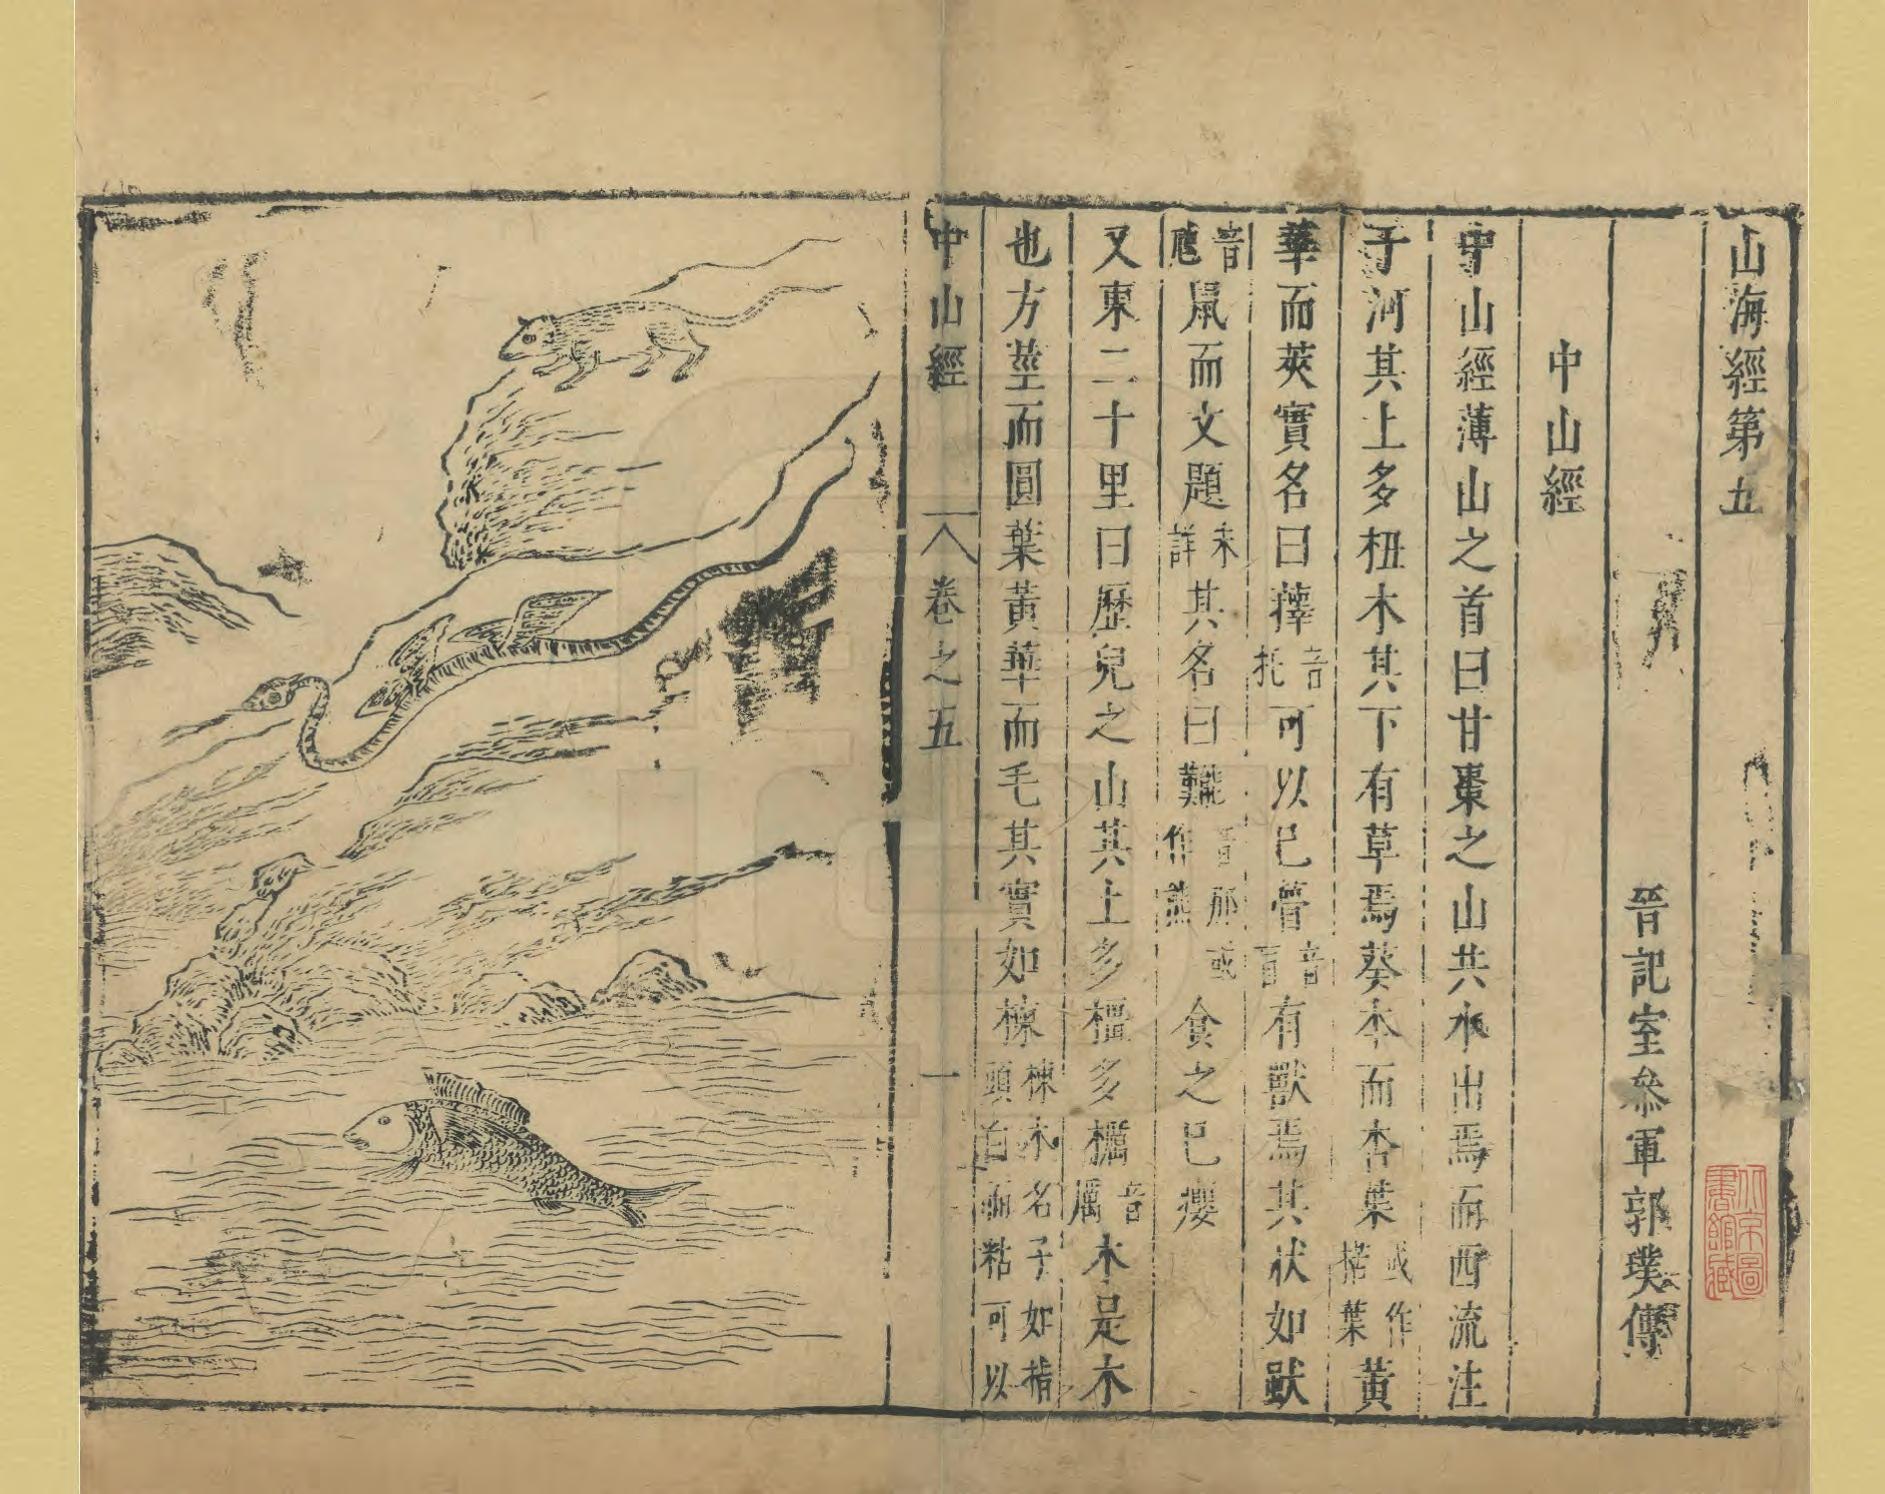 山海經第五
晉記室參軍郭璞傳
中山經
中山經薄山之首曰甘棗之山共水出焉而西流注
于河其上多杻木其下有草焉葵本而杏葉或作楉葉黃
華而莢實名曰蘀音托可以已瞢音盲有獸焉其狀如䶅
音虺鼠而文題未詳其名曰㔮音那或作熊食之已癭
又東二十里曰歷兒之山其上多橿多櫔音厲木是木
也方莖而圓葉黃華而毛其實如楝楝木名子如指頭白而粘可以
中山經
卷之五
一